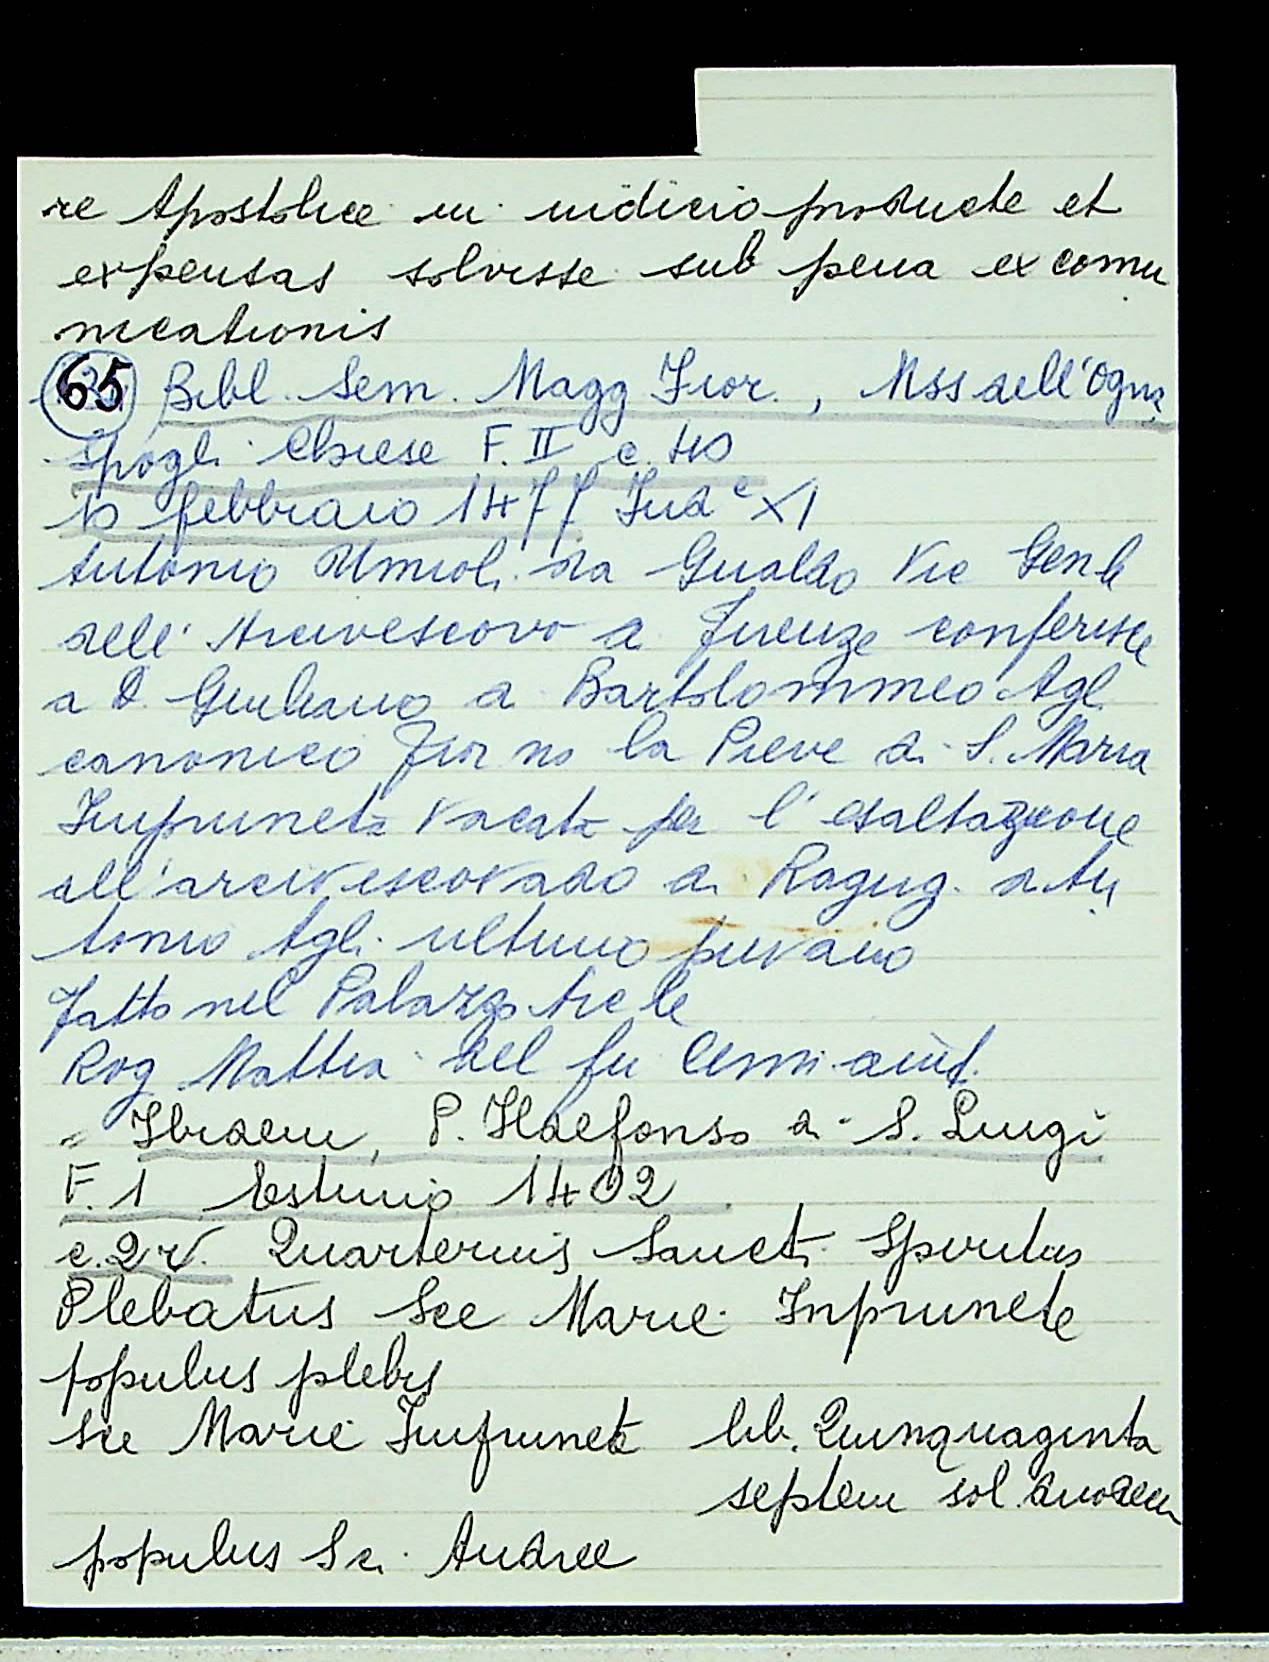 re Apostolice in iudicio producte et
expensas solvisse sub pena excomu
nicationis
65 Bibl. Sem. Magg Fior., Mss dell'Ogna
Spogli Chiese F. II c. 40
10 febbraio 1477 Ind.e XI
Antonio da Gualdo Vic Genle
dell'Arcivescovo di Firenze conferisce
a D. Giuliano di Bartolommeo Agli
canonico Fior no la Pieve di S. Maria
Impruneta vacata per l'esaltazione
all'arcivescovado di Ragug. d'An
tonio Agli ultimo pievano
fatto nel Palazzo Arc le
Rog Mattia del fu
Ibidem, P. Ildefonso di S. Luigi
F. 1 Estimo 1402
c. 2 v. Quarterius Sancti Spiritus
Plebatus Sce Marie Inprunete
populus plebis
Sce Marie Imprunete lib. Quinquaginta
septem sol. duodecim
populus Sci Andree